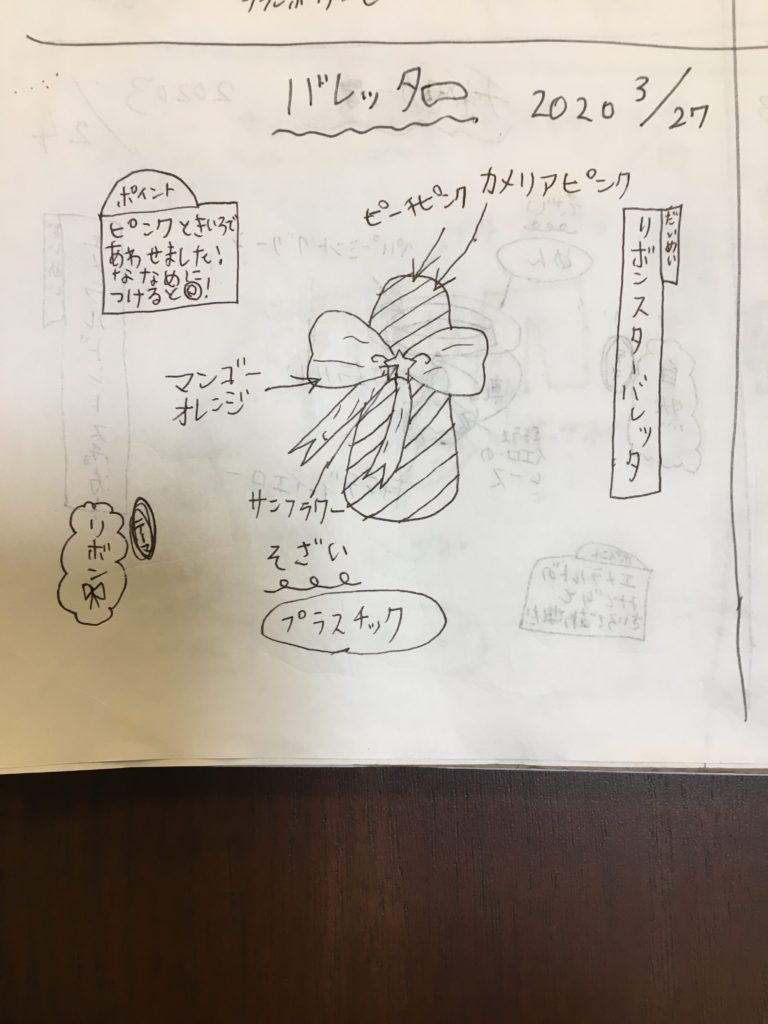 バレッタ
2020 3/27
ポイント
ピンクときいろで
あわせました!
ななめに
つけると◎!
ピーチピンク
カメリアピンク
だいめい
リボンスターバレッタ
マンゴー
オレンジ
サンフラワー
テーマ
リボン
そざい
プラスチック